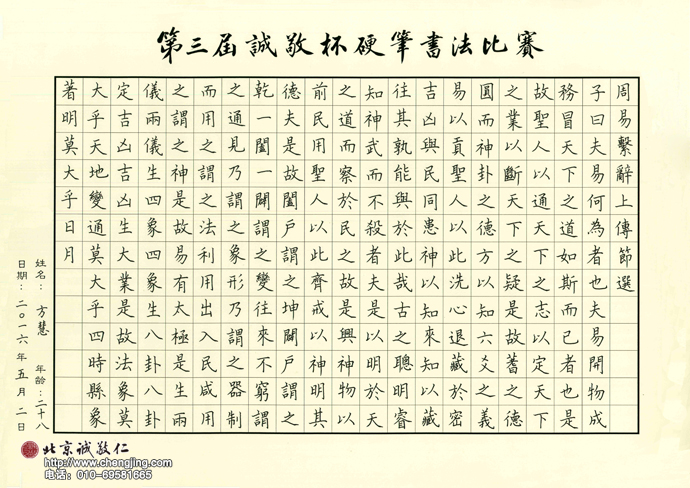 第三屆誠敬杯硬筆書法比賽
周易繫辭上傳節選
子曰夫易何為者也夫易開物成
務冒天下之道如斯而已者也是
故聖人以通天下之志以定天下
之業以斷天下之疑是故蓍之德
圓而神卦之德方以知六爻之義
易以貢聖人以此洗心退藏於密
吉凶與民同患神以知來知以藏
往其孰能與於此哉古之聰明睿
知神武而不殺者夫是以明於天
之道而察於民之故是興神物以
前民用聖人以此齊戒以神明其
德夫是故闔戶謂之坤闢戶謂之
乾一闔一闢謂之變往來不窮謂
之通見乃謂之象形乃謂之器制
而用之謂之法利用出入民咸用
之謂之神是故易有太極是生兩
儀兩儀生四象四象生八卦八卦
定吉凶吉凶生大業是故法象莫
大乎天地變通莫大乎四時縣象
著明莫大乎日月
姓名：方慧 年齡：二十八
日期：二〇一六年五月二日
北京誠敬仁
http://www.chengjing.com
电话：010-69581665